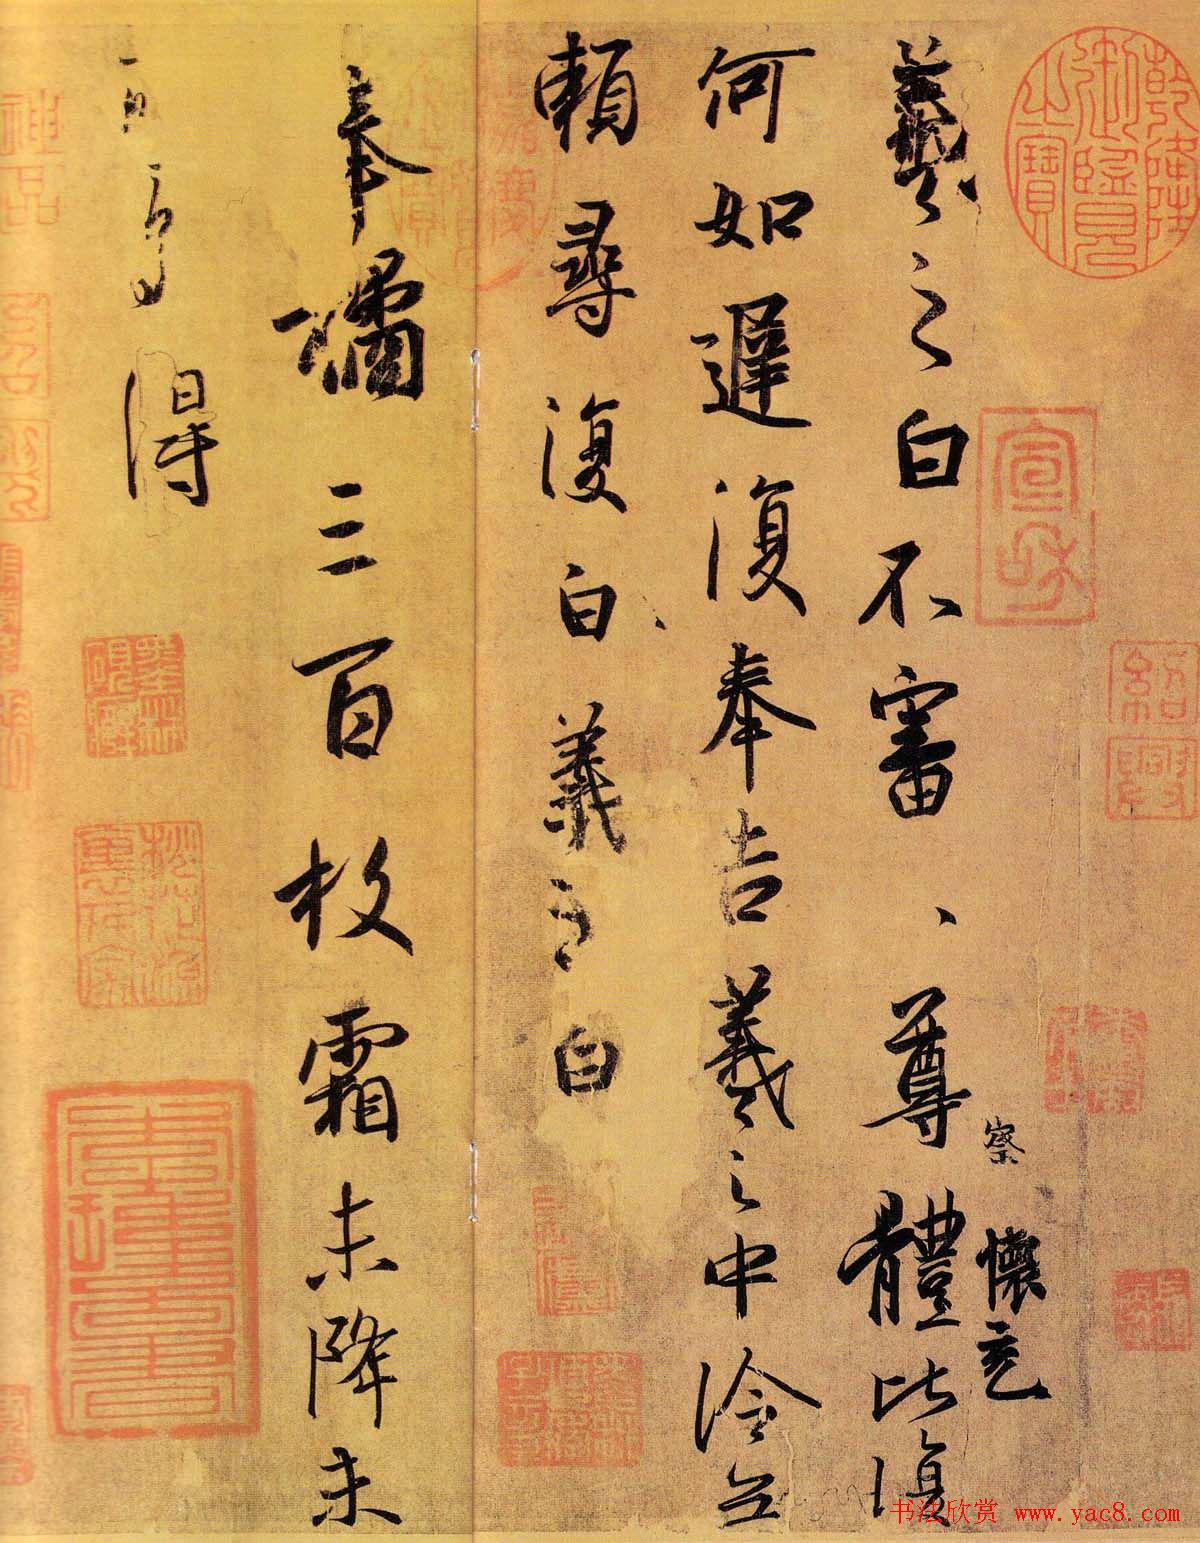 乾隆御覽之寶
宣和
紹興
察 懷充
羲之白不審、尊體比復
何如遲復奉告羲之中冷無
賴尋復白羲之白
奉橘三百枚霜未降未
可多得
神品
书法欣赏 www.yac8.com